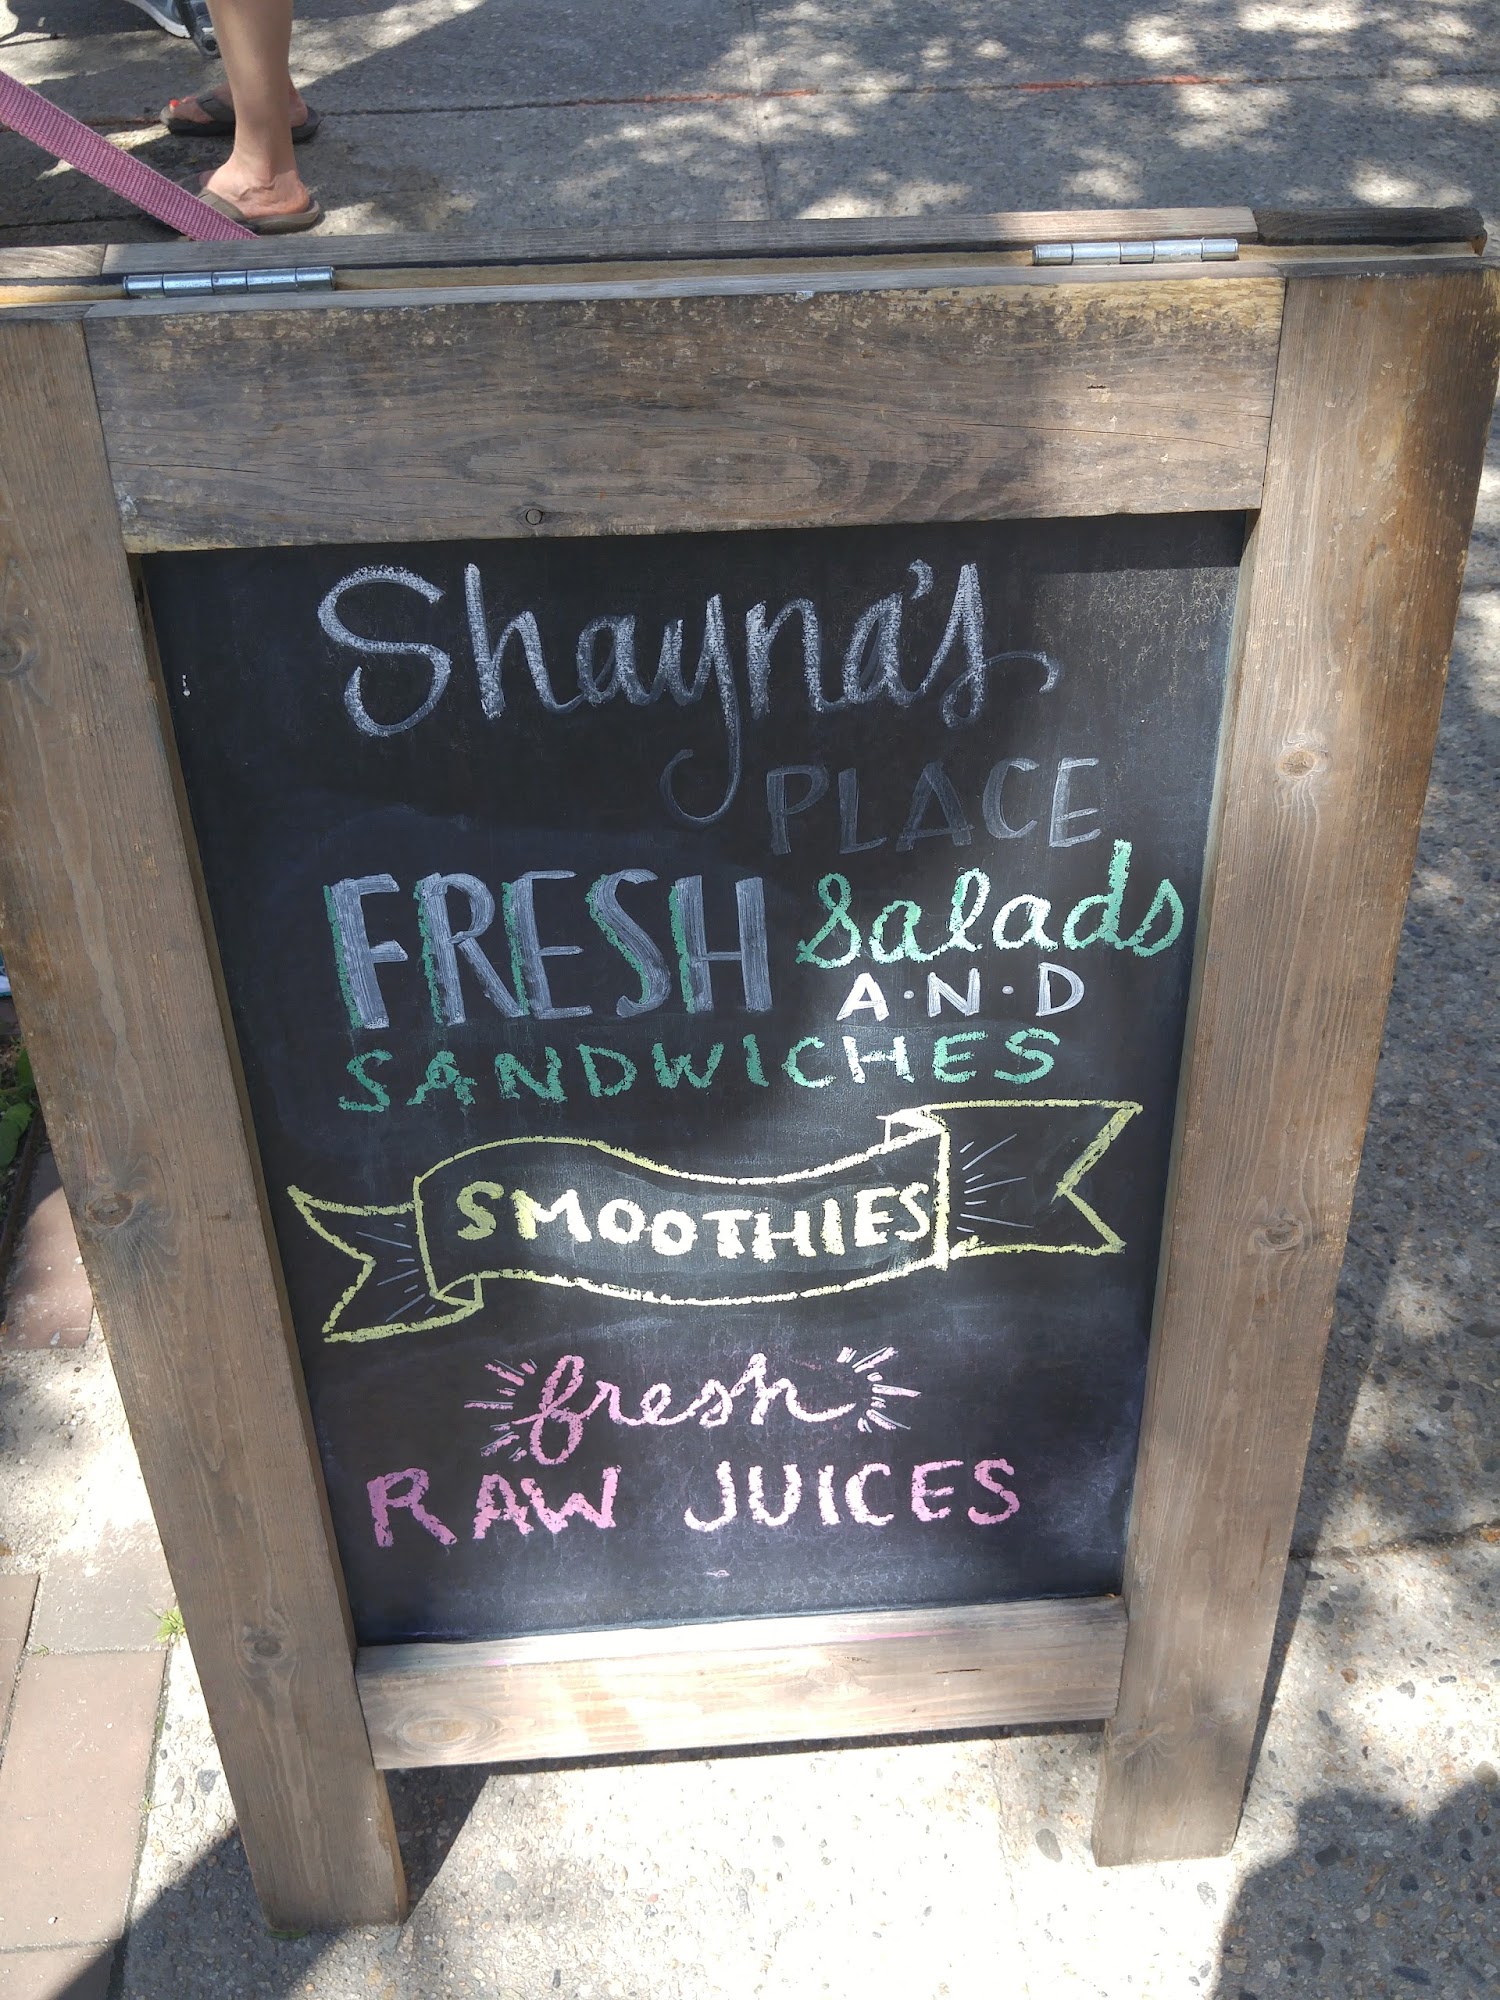 Shayna's
PLACE
FRESH salads
A·N·D
SANDWICHES
SMOOTHIES
fresh
RAW JUICES